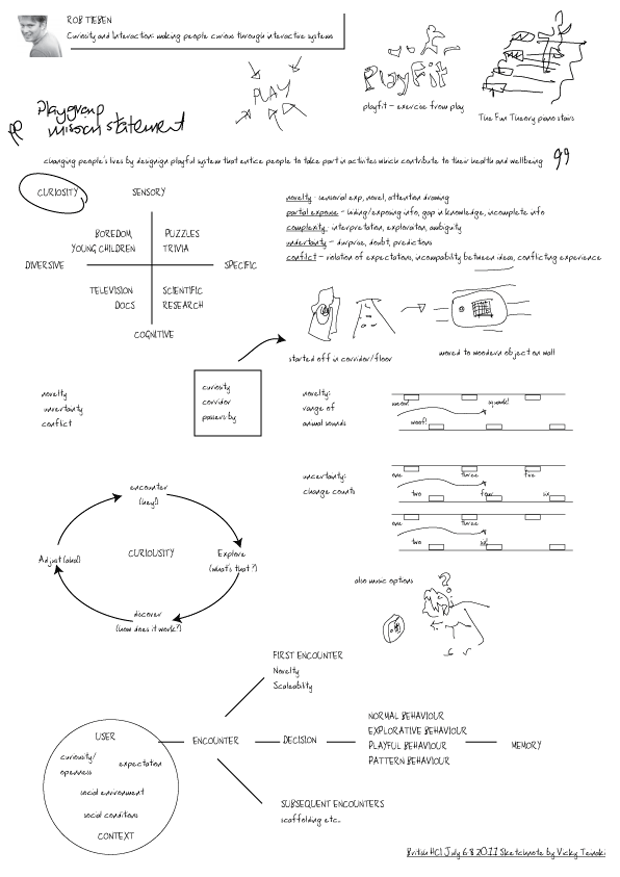 ROB TIEBEN
Curiosity and Interaction: making people curious through interactive systems
PLAY
PlayFit
playfit - exercise from play
The Fun Theory piano stairs
Playgroup
mission statement
changing people's lives by designign playful system that entice people to take part in activites which contribute to their health and wellbeing
CURIOSITY
SENSORY
BOREDOM
YOUNG CHILDREN
PUZZLES
TRIVIA
DIVERSIVE
SPECIFIC
TELEVISION
DOCS
SCIENTIFIC
RESEARCH
COGNITIVE
novelty - sensorial exp, novel, attention drawing
- hiding/exposing info, gap in knowledge, incomplete info
complexity - interpretation, exploration, ambiguity
- surprise, doubt, predictions
conflict - relation of expectations, incompability between ideas, conflicting experience
started off in corridor/floor
moved to wooden object on wall
novelty
uncertainty
conflict
curiosity
corridor
passers by
novelty:
range of
animal sounds
meow!
squeak!
woof!
uncertainty:
change counts
one
three
five
two
four
six
one
three
two
six
encounter
(hey!)
Adjust (aha!)
CURIOUSITY
Explore
(what's that?)
discover
(how does it work?)
also music options
FIRST ENCOUNTER
Novelty
Scaleability
USER
curiosity/
openness
expectation
social environment
social conditions
CONTEXT
ENCOUNTER
DECISION
NORMAL BEHAVIOUR
EXPLORATIVE BEHAVIOUR
PLAYFUL BEHAVIOUR
PATTERN BEHAVIOUR
MEMORY
SUBSEQUENT ENCOUNTERS
scaffolding etc.
British HCI July 6 8 2011 Sketchnote by Vicky Teinaki